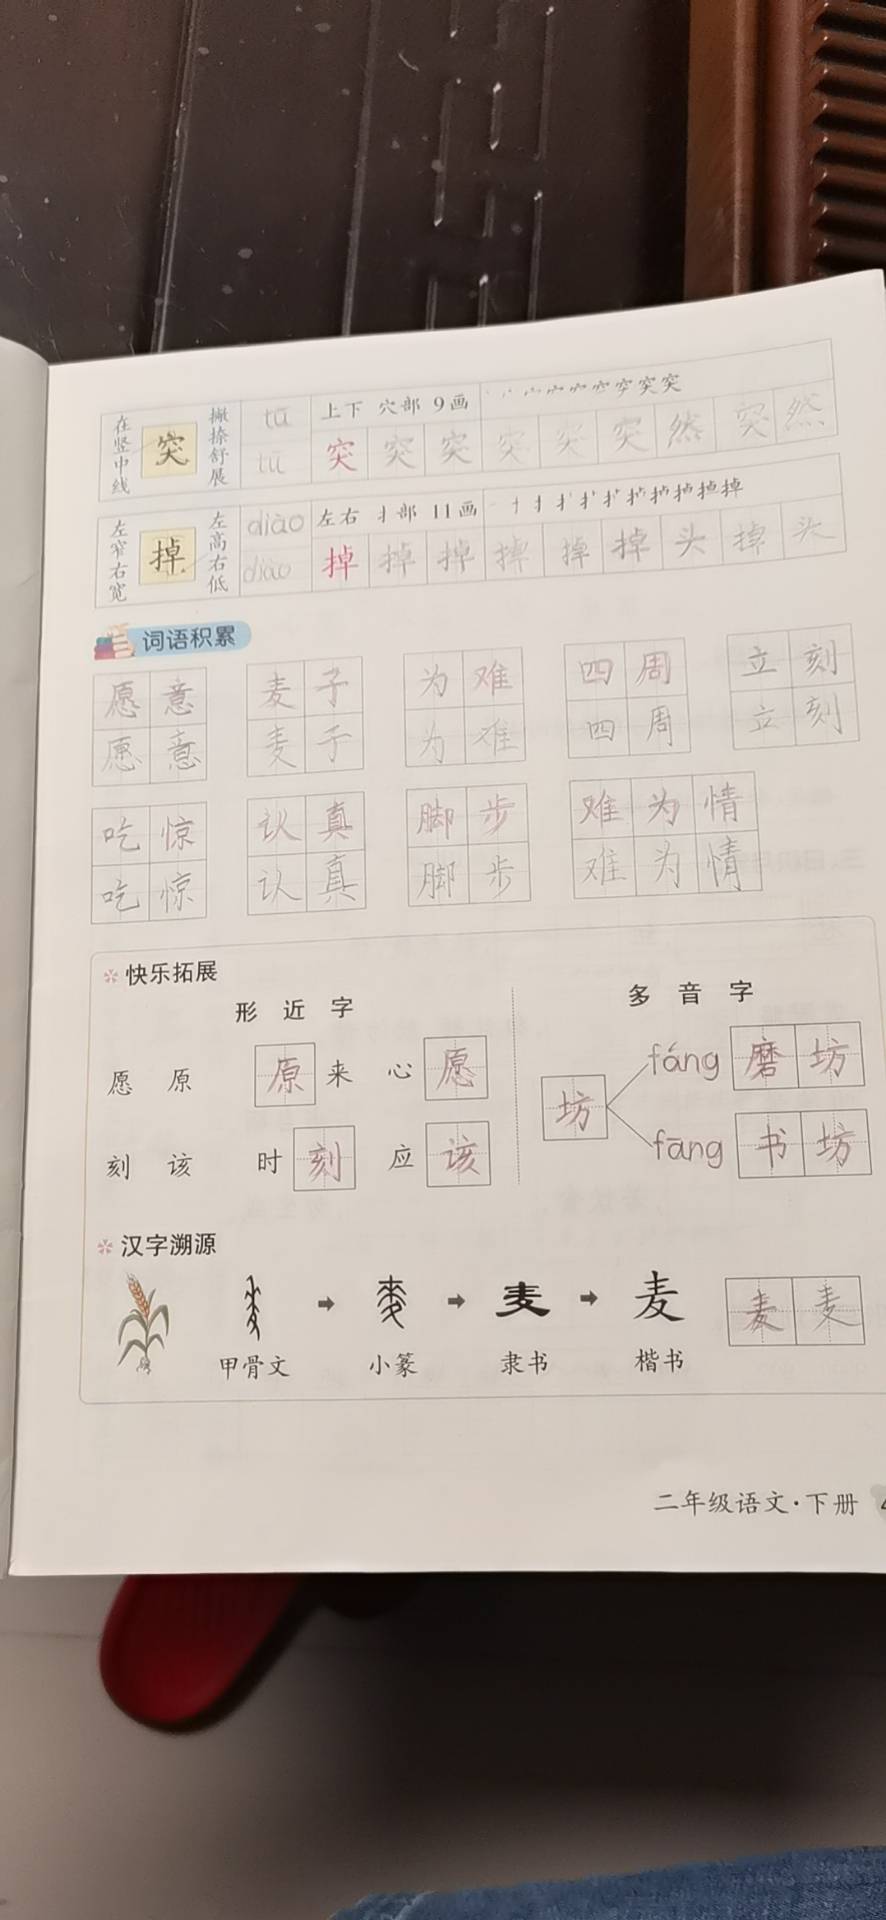 在竖中线 突 撇捺舒展 tū 上下 穴部 9画
tū 突 突 突 突 突 突 然 突 然
左窄右宽 掉 左高右低 diào 左右 扌部 11画
diào 掉 掉 掉 掉 掉 掉 头 掉 头
词语积累
愿意 麦子 为难 四周 立刻
愿意 麦子 为难 四周 立刻
吃惊 认真 脚步 难为情
吃惊 认真 脚步 难为情
快乐拓展
形近字 多音字
愿 原 原来 心愿 坊 fáng 磨坊
刻 该 时刻 应该 fāng 书坊
汉字溯源
麦 麦 麦 麦
甲骨文 小篆 隶书 楷书
二年级语文·下册